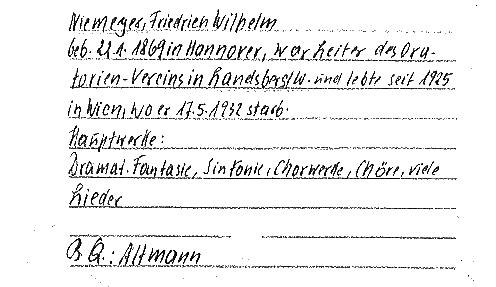 Niemeyer, Friedrich Wilhelm
geb. 22.1.1869 in Hannover, war Leiter des Ora-
torien-Vereins in Landsberg/W. und lebte seit 1925
in Wien, wo er 17.5.1932 starb.
Hauptwerke:
Dramat. Fantasie, Sinfonie, Chorwerke, Chöre, viele
Lieder
B.Q.: Altmann